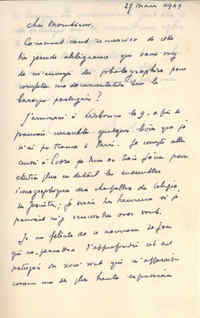 27 mars 1949
Cher Monsieur,
Comment vous remercier de votre
très grande obligeance qui vous
de m'envoyer des photographies pour
compléter ma documentation sur le
baroque portugais ?
J'arriverai à Lisbonne le 9 - afin de
pouvoir quelques que je
n'ai pu trouver à Paris. Je compte aller
aussi à Evora je
étudier plus en détail les ensembles
iconographiques des chapelles du collège
des Jésuites; je serais très heureux si je
pouvais m'y rencontrer avec vous.
Je me félicite de ce nouveau séjour
qui me permettra d'approfondir cet art
portugais du XVIIIe siècle qui m'apparaît
comme une des plus hautes expressions